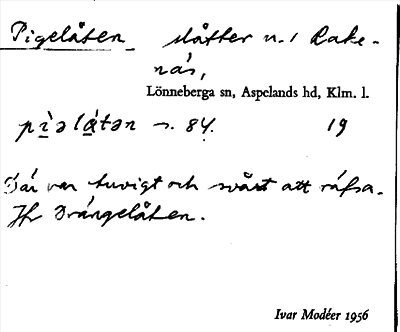 Pigelåten slåtter n. i Rake-
näs,
Lönneberga sn, Aspelands hd, Klm. l.
pìəlåtən s. 84. 19
Där var tuvigt och svårt att räfsa.
Jfr Drängelåten.
Ivar Modéer 1956